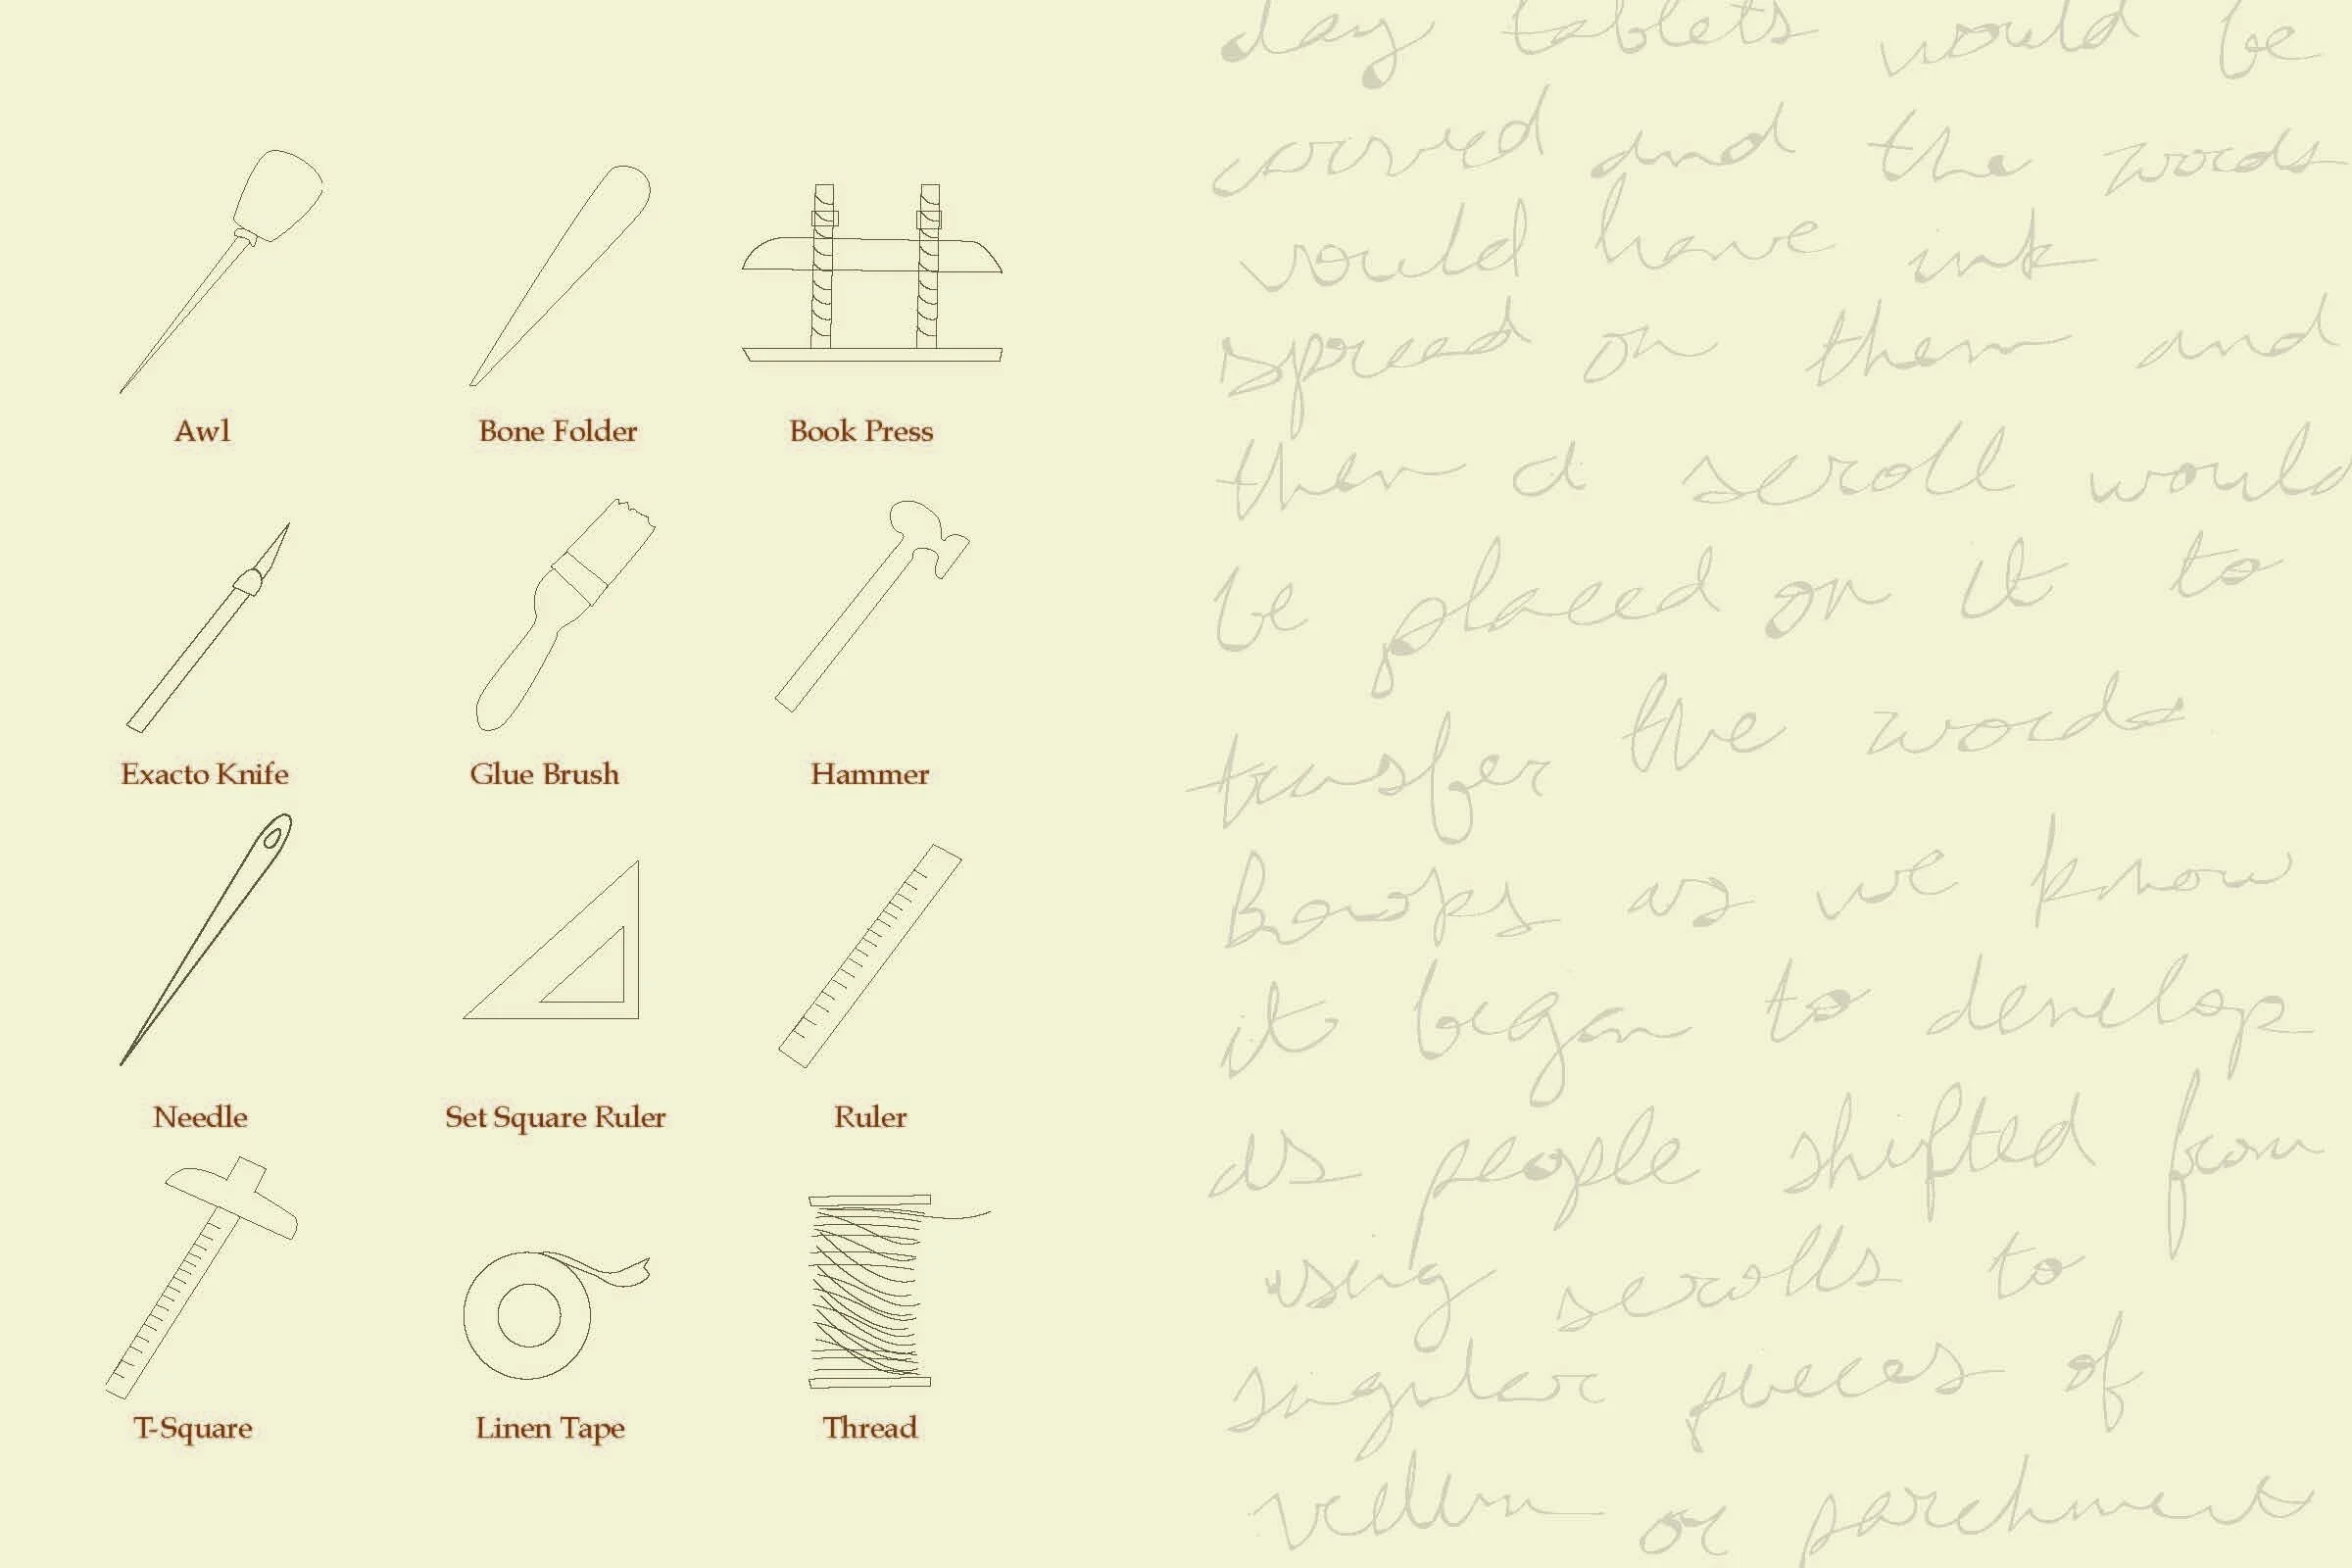 Awl
Bone Folder
Book Press
Exacto Knife
Glue Brush
Hammer
Needle
Set Square Ruler
Ruler
T-Square
Linen Tape
Thread
day tablets would be
carved and the words
would have ink
spread on them and
then a scroll would
be placed on it to
trasfer the words
Books as we know
it began to develop
as people shifted from
using scrolls to
singular pieces of
vellum or parchment